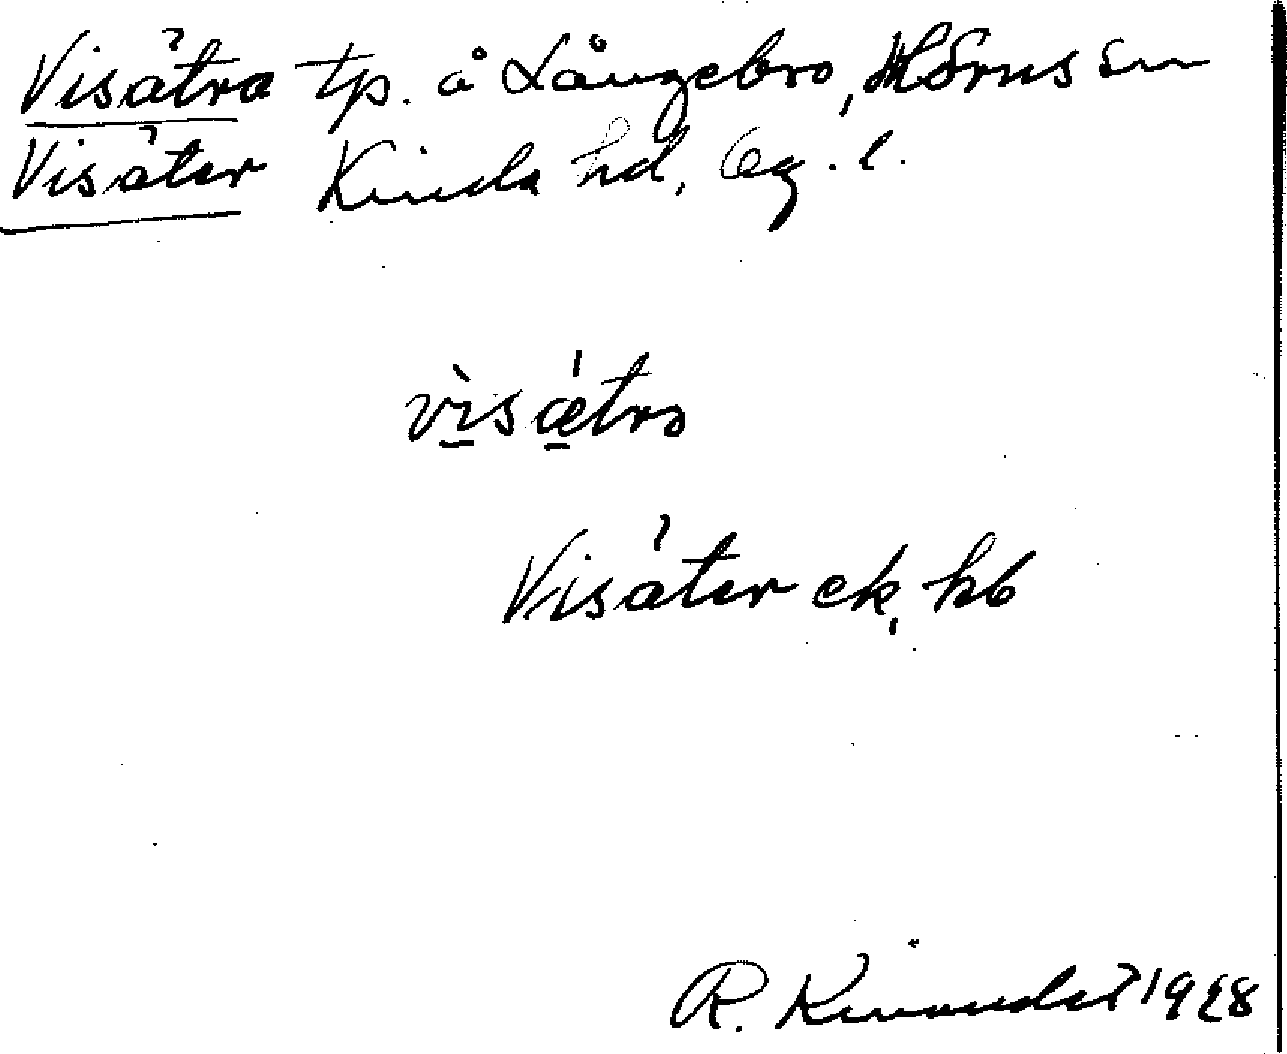 Visätra tp. å Långebro, Hörns sn
Visäter Kinda hd, Ög. l.
vìsǽtrɔ
Visäter ek, kb
R. Kinander 1928